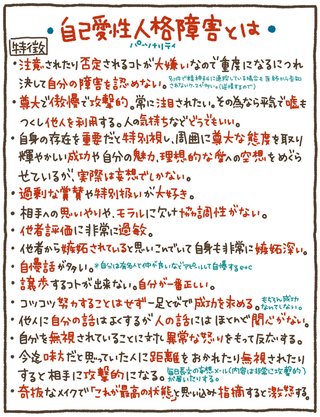 自己愛性人格障害とは
パーソナリティ
特徴
・注意されたり否定されるコトが大嫌いなので重度になるにつれ
決して自分の障害を認めない。
・尊大で傲慢で攻撃的。常に注目されたい。その為なら平気で嘘も
つくし他人を利用する。人の気持ちなどどうでもいい。
・自身の存在を重要だと特別視し、周囲に尊大な態度を取り
輝やかしい成功や自分の魅力、理想的な愛への空想をめぐら
せているが、実際は妄想でしかない。
・過剰な賞賛や特別扱いが大好き。
・相手への思いやりや、モラルに欠け協調性がない。
・他者評価に非常に過敏。
・他者から嫉妬されていると思いこんでいて自身も非常に嫉妬深い。
・自慢話が多い。
・譲歩するコトが出来ない。自分が一番正しい。
・コツコツ努力することはせず一足とびで成功を求める。
・他人に自分の話はよくするが人の話にはほとんど関心がない。
・自分を無視されていることに対し異常な怒りをもって反応する。
・今迄味方だと思っていた人に距離をおかれたり無視されたり
すると相手に攻撃的になる。
・奇抜なメイクで「これが最高の状態」と思い込み指摘すると激怒する。